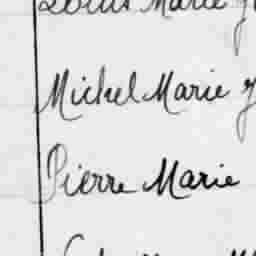 Louis Marie
Michel Marie
Pierre Marie